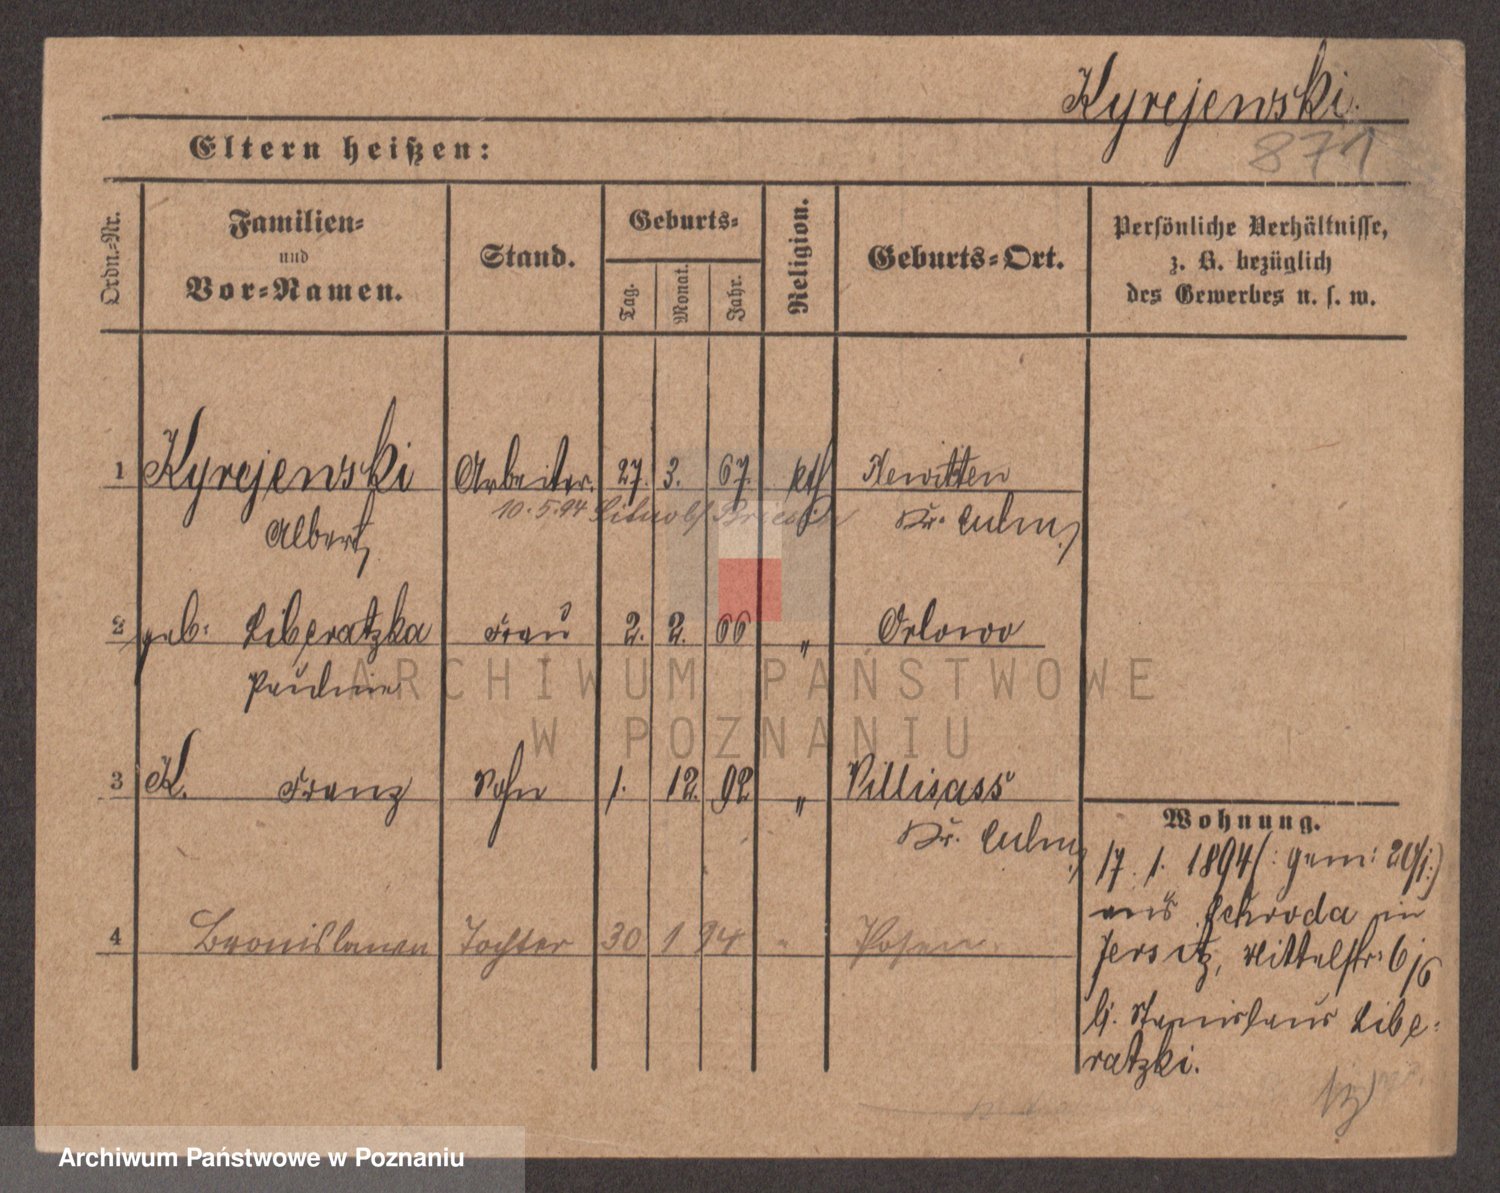 Kyrejewski.
871
Eltern heißen:
Ordn.-Nr.
Familien-
und
Vor-Namen.
Stand.
Geburts-
Tag.
Monat.
Jahr.
Religion.
Geburts-Ort.
Persönliche Verhältnisse,
z. B. bezüglich
des Gewerbes u. s. w.
1 Kyrejewski Arbeiter. 27. 3. 67. kth
10.5.94
Albert Kr. Culm
2 geb: Liberatzka Frau 2. 2. 66 " Orlowo
Pauline
3 K. Franz Sohn 1. 12. 92 " Villisass
Kr. Culm
4 Bronislawa Tochter 30 1 94 " Posen.
Wohnung.
17. 1. 1894 (: gem: 20/1:)
aus Schroda in
Jersitz, Mittelstr: 6/6
b. Stanislaus Libe-
ratzki.
ARCHIWUM PAŃSTWOWE
W POZNANIU
Archiwum Państwowe w Poznaniu